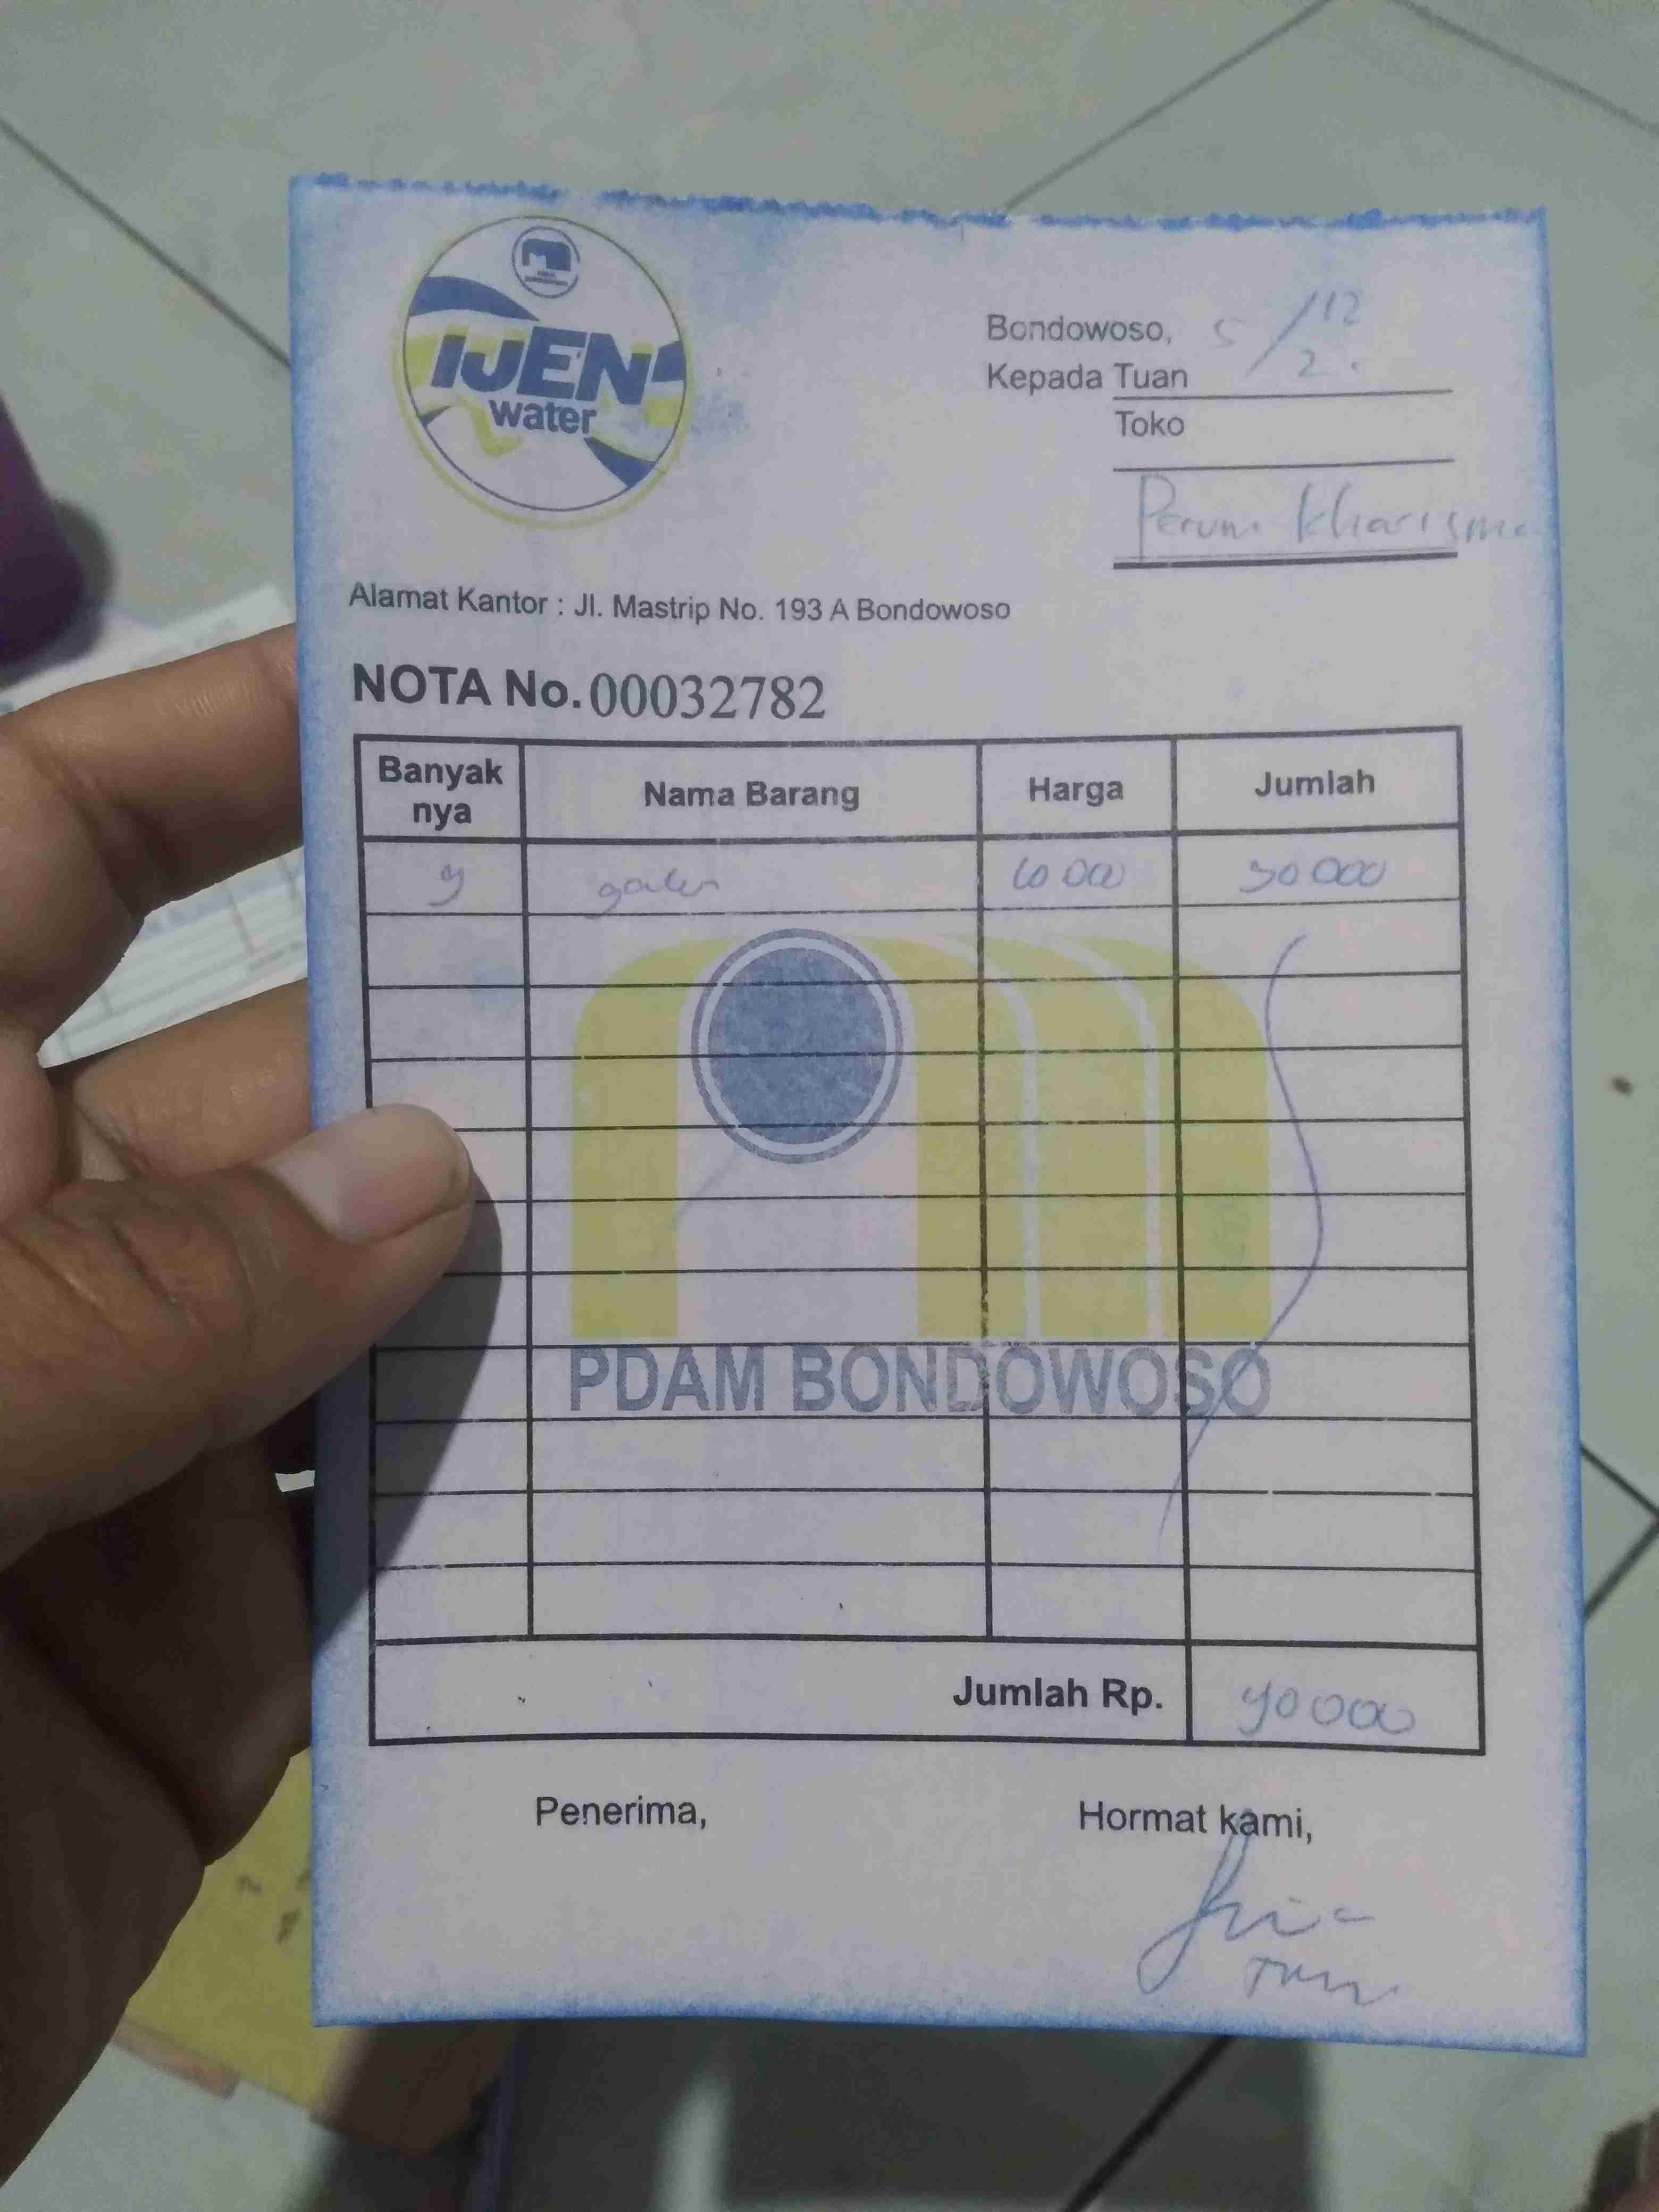 IJEN
water
Bondowoso, 5/12
Kepada Tuan
Toko
Perum Kharisma
Alamat Kantor : Jl. Mastrip No. 193 A Bondowoso
NOTA No. 00032782
Banyak nya Nama Barang Harga Jumlah
9 galon 10 000 90 000
PDAM BONDOWOSO
Jumlah Rp. 90 000
Penerima, Hormat kami,